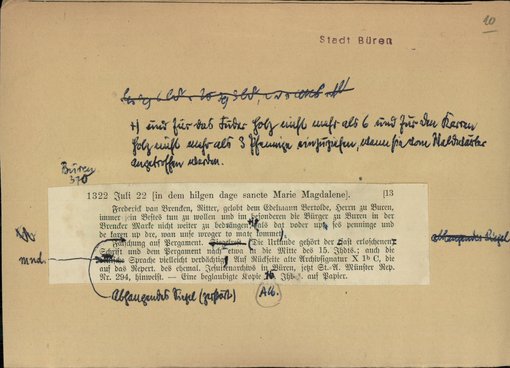 10
Stadt Büren
+) und für das Fuder Holz nicht mehr als 6 und für den Karren
Holz nicht mehr als 3 Pfennige einzuziehen, wenn sie vom Waldwärter
angetroffen werden.
Büren
1322 Juli 22 [in dem hilgen dage sancte Marie Magdalene]. [13
Frederik van Brencken, Ritter, gelobt dem Edelmann Bertolde, Herrn zu Buren,
immer sein Bestes tun zu wollen und in besonderen die Bürger zu Buren in der
Brencker Marke nicht weiter zu bedrängen, als dat voder upte ses penninge und
de karen up dre, wan unse woroger to mate kommet.
Fälschung auf Pergament. (Die Urkunde gehört der fast erloschenen
Schrift und dem Pergament nach etwa in die Mitte des 15. Jhdts.; auch die
mnd. Sprache vielleicht verdächtig.) Auf Rückseite alte Archivsignatur X 1b C, die
auf das Repert. des ehemal. Jesuitenarchivs in Büren, jetzt St.-A. Münster Rep.
Nr. 294, hinweist. — Eine beglaubigte Kopie Jhd. auf Papier.
Abhangendes Siegel